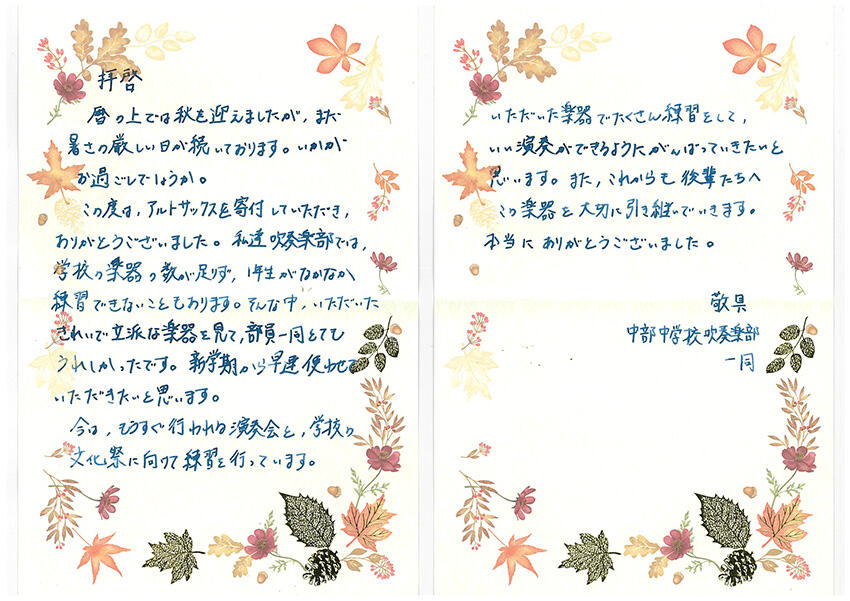 拝啓
暦の上では秋を迎えましたが、まだ
暑さの厳しい日が続いております。いかが
お過ごしでしょうか。
この度は、アルトサックスを寄付していただき、
ありがとうございました。私達吹奏楽部では、
学校の楽器の数が足りず、1年生がなかなか
練習できないこともあります。そんな中、いただいた
きれいで立派な楽器を見て、部員一同とても
うれしかったです。新学期から早速使わせて
いただきたいと思います。
今は、もうすぐ行われる演奏会と、学校の
文化祭に向けて練習を行っています。
いただいた楽器でたくさん練習をして、
いい演奏ができるようにがんばっていきたいと
思います。また、これからも後輩たちへ
この楽器を大切に引き継いでいきます。
本当にありがとうございました。
敬具
中部中学校吹奏楽部
一同